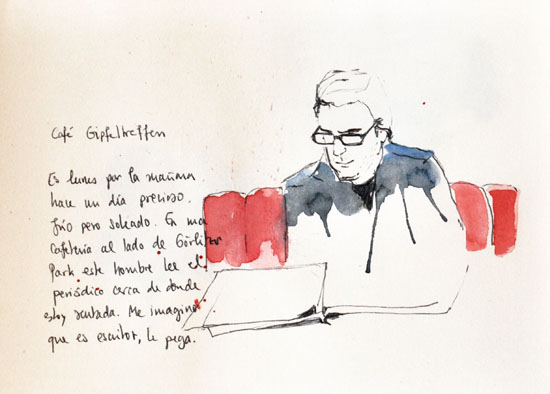 Café Gipfeltreffen
Es lunes por la mañana
hace un día precioso.
frío pero soleado. En una
cafetería al lado de Görlitzer
Park este hombre lee el
periódico cerca de donde
estoy sentada. Me imagino
que es escritor, le pega.